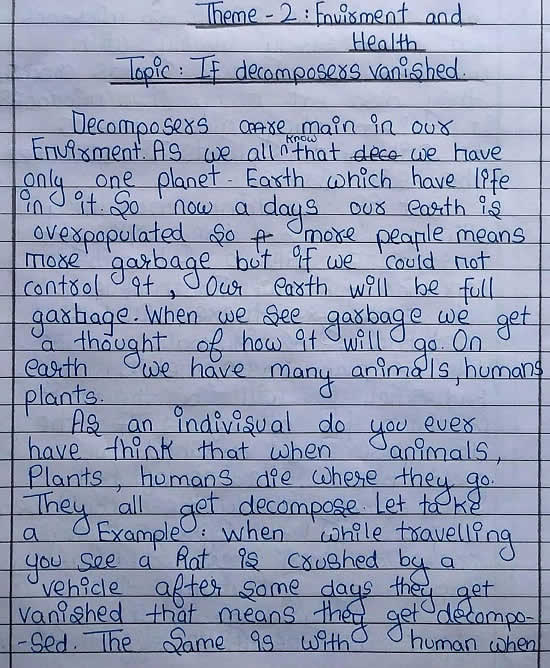 Theme - 2 : Envirment and
Health
Topic : If decomposers vanished.
Decomposers are main in our
Envirment. As we all know that deco we have
only one planet. Earth which have life
in it. So now a days our earth is
overpopulated so more people means
more garbage but if we could not
control it, Our earth will be full
garbage. When we see garbage we get
a thought of how it will go. On
earth we have many animals, humans
plants.
As an indiviqual do you ever
have think that when animals,
Plants, humans die where they go.
They all get decompose. Let take
a Example : when while travelling
you see a Rat is crushed by a
vehicle after some days they get
vanished that means they get decompo-
-sed. The Same is with human when